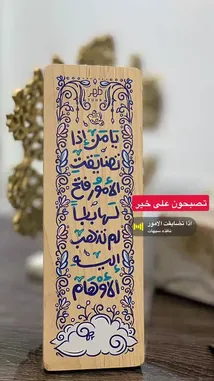 يا من إذا
تضايقت
الأمور فتح
لها باباً
لم تذهب
إليه
الأوهام
تصبحون على خير
اذا تضايقت الامور